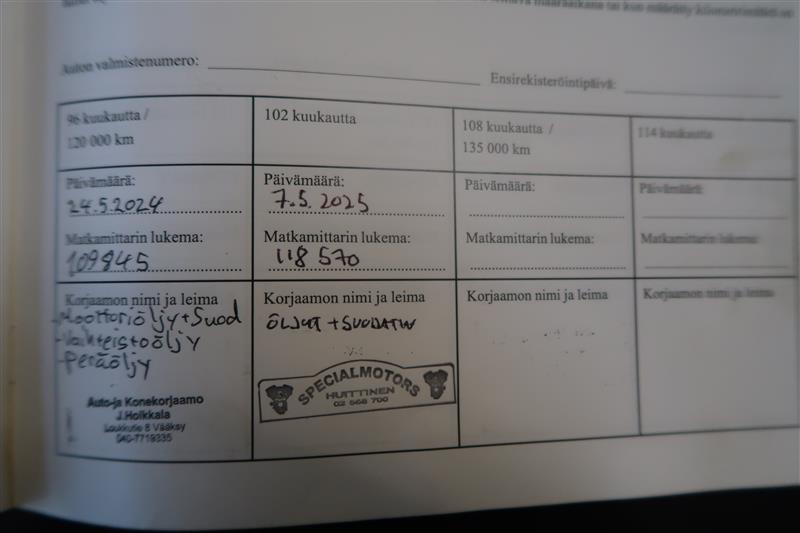 määräaikana tai kun määrätty kilometrimäärä on
Auton valmistenumero:
Ensirekisteröintipäivä:
96 kuukautta /
120 000 km
Päivämäärä:
24.5.2024
Matkamittarin lukema:
109845
Korjaamon nimi ja leima
-Moottoriöljy+Suod
-Vaihteistoöljy
-Peräöljy
Auto-ja Konekorjaamo
J.Hoikkala
Loukkutie 8 Vääksy
040-7719335
102 kuukautta
Päivämäärä:
7.5.2025
Matkamittarin lukema:
118 570
Korjaamon nimi ja leima
ÖLJYT + SUODATIN
SPECIALMOTORS
HUITTINEN
02 568 700
108 kuukautta /
135 000 km
Päivämäärä:
Matkamittarin lukema:
Korjaamon nimi ja leima
114 kuukautta
Päivämäärä:
Matkamittarin lukema:
Korjaamon nimi ja leima